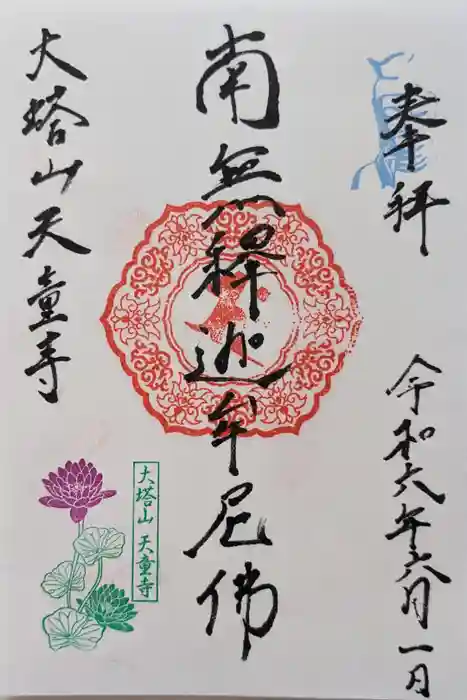 奉拝
令和六年六月一日
南無釋迦牟尼佛
大塔山天童寺
大塔山 天童寺